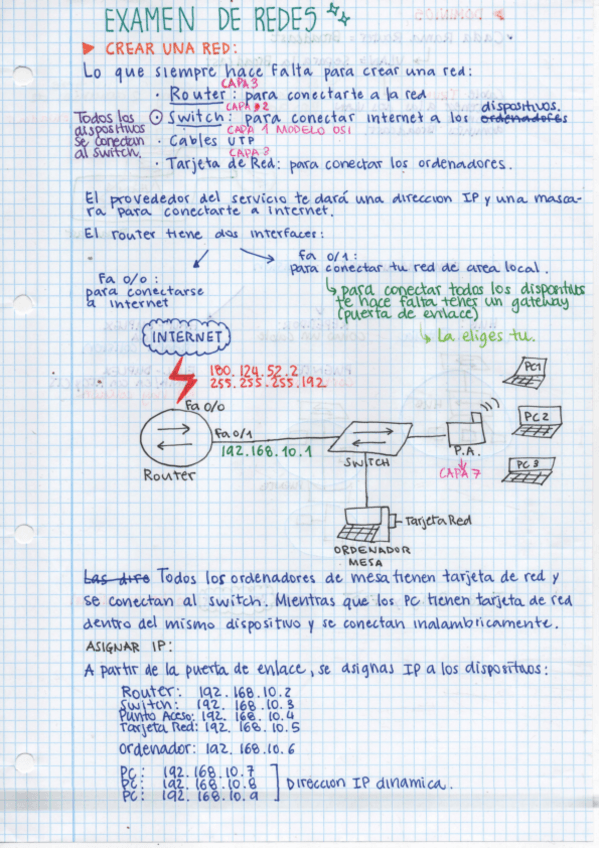 EXAMEN DE REDES
CREAR UNA RED:
Lo que siempre hace falta para crear una red:
CAPA 3
· Router: para conectarte a la red
CAPA 2
dispositivos.
Todos los dispositivos se conectan al switch.
Switch: para conectar internet a los ordenadores
CAPA 1 MODELO OSI
· Cables UTP
CAPA 3
· Tarjeta de Red: para conectar los ordenadores.
El provededor del servicio te dará una direccion IP y una masca-
ra para conectarte a internet.
El router tiene dos interfaces:
Fa 0/0:
para conectarse
a internet
Fa 0/1:
para conectar tu red de area local.
para conectar todos los dispositivos
te hace falta tener un gateway
(puerta de enlace)
La eliges tu.
INTERNET
180.124.52.2
255.255.255.192
Fa 0/0
Fa 0/1
192.168.10.1
Router
SWITCH
P.A.
CAPA 7
PC1
PC2
PC3
Tarjeta Red
ORDENADOR
MESA
Las dire Todos los ordenadores de mesa tienen tarjeta de red y
se conectan al switch. Mientras que los PC tienen tarjeta de red
dentro del mismo dispositivo y se conectan inalambricamente.
ASIGNAR IP:
A partir de la puerta de enlace, se asignas IP a los dispositivos:
Router: 192.168.10.2
Switch: 192.168.10.3
Punto Aceso: 192.168.10.4
Tarjeta Red: 192.168.10.5
Ordenador: 192.168.10.6
PC: 192.168.10.7
PC: 192.168.10.8
PC: 192.168.10.9
Direccion IP dinamica.